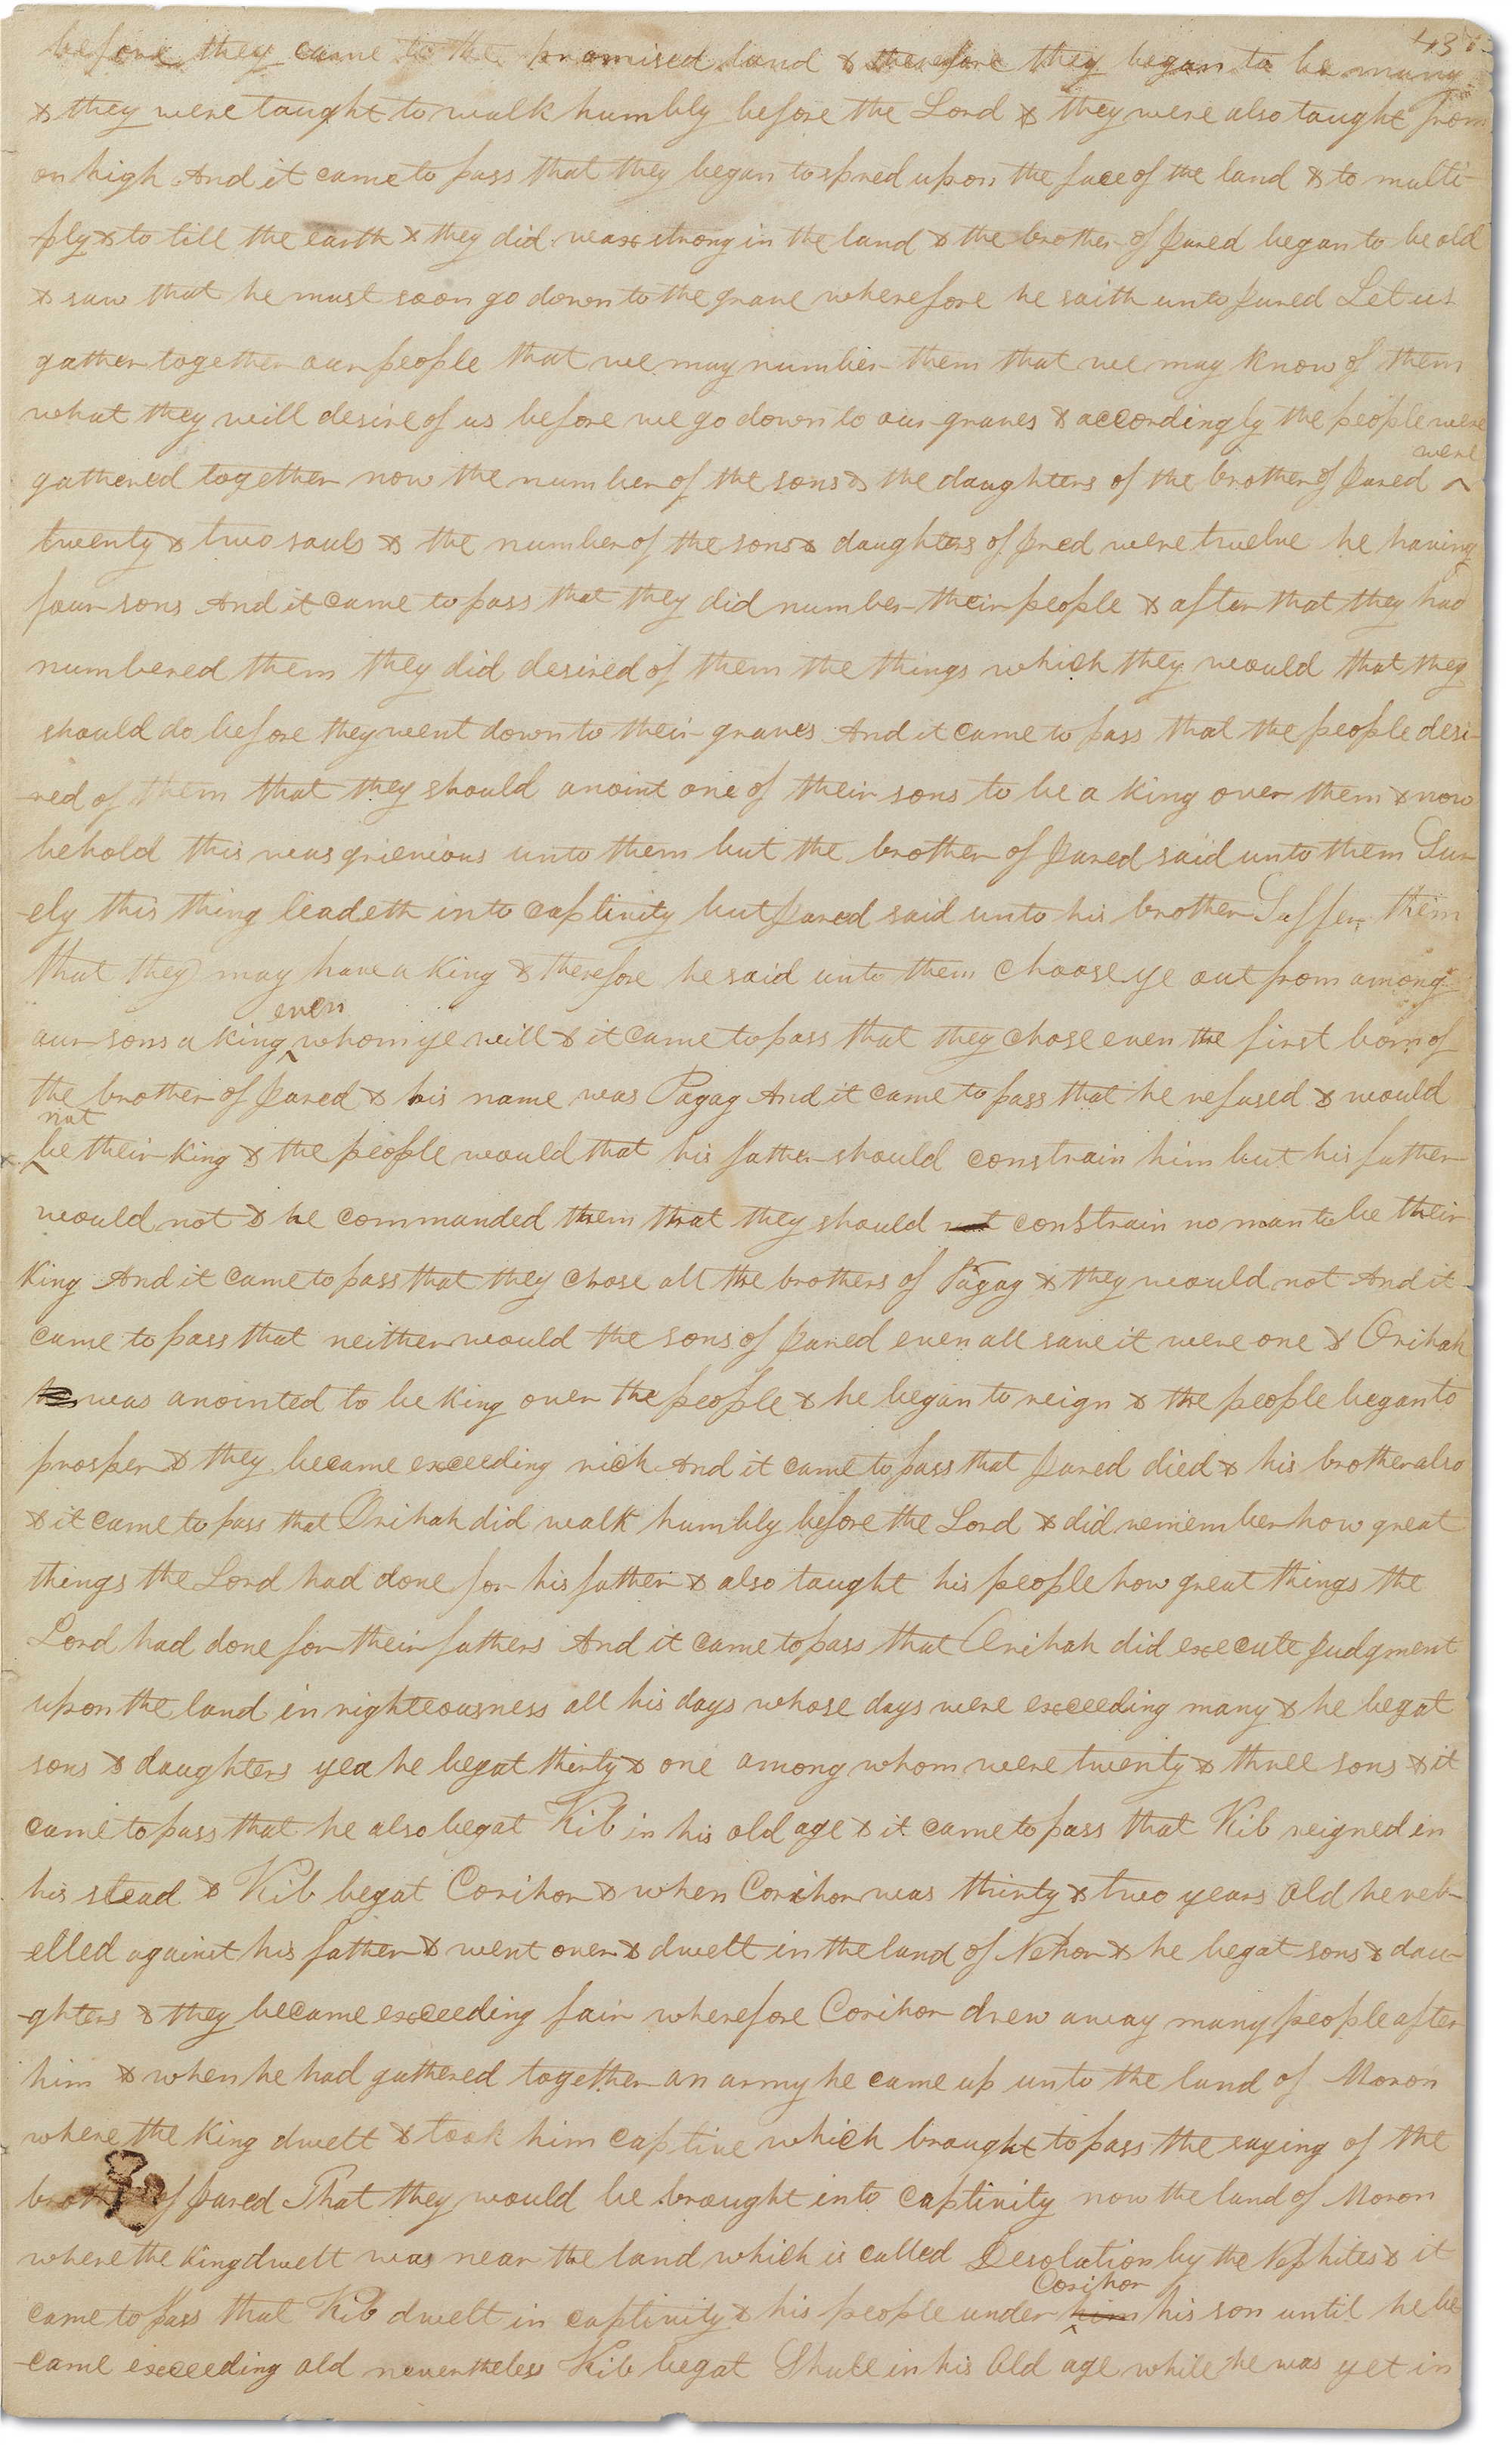 43
before they came to the promised land & therefore they began to be many
& they were taught to walk humbly before the Lord & they were also taught from
on high And it came to pass that they began to spred upon the face of the land & to multi-
ply & to till the earth & they did wax strong in the land & the brother of Jared began to be old
& saw that he must soon go down to the grave wherefore he saith unto Jared Let us
gather together our people that we may number them that we may know of them
what they will desire of us before we go down to our graves & accordingly the people were
were
gathered together now the number of the sons & the daughters of the brother of Jared ^
twenty & two souls & the number of the sons & daughters of Jred were twelve he having
four sons And it came to pass that they did number their people & after that they had
numbered them they did desired of them the things which they would that they
should do before they went down to their graves And it came to pass that the people desi-
-red of them that they should anoint one of their sons to be a king over them & now
behold this was grievious unto them but the brother of Jared said unto them Sur
-ely this thing leadeth into captivity but Jared said unto his brother Suffer them
that they may have a king & therefore he said unto them choose ye out from among
even
our sons a king ^ whom ye will & it came to pass that they chose even the first born of
the brother of Jared & his name was Pagag And it came to pass that he refused & would
not
^ be their king & the people would that his father should constrain him but his father
would not & he commanded them that they should not constrain no man to be their
king And it came to pass that they chose all the brothers of Pagag & they would not And it
came to pass that neither would the sons of Jared even all save it were one & Orihah
he was anointed to be king over the people & he began to reign & the people began to
prosper & they became exceeding rich And it came to pass that Jared died & his brother also
& it came to pass that Orihah did walk humbly before the Lord & did remember how great
things the Lord had done for his father & also taught his people how great things the
Lord had done for their fathers And it came to pass that Orihah did execute judgment
upon the land in righteousness all his days whose days were exceeding many & he begat
sons & daughters yea he begat thirty & one among whom were twenty & three sons & it
came to pass that he also begat Kib in his old age & it came to pass that Kib reigned in
his stead & Kib begat Corihor & when Corihor was thirty & two years old he reb-
-elled against his father & went over & dwelt in the land of Nehor & he begat sons & dau-
-ghters & they became exceeding fair wherefore Corihor drew away many people after
him & when he had gathered together an army he came up unto the land of Moron
where the king dwelt & took him captive which brought to pass the saying of the
brother of Jared That they would be brought into captivity now the land of Moron
where the king dwelt was near the land which is called Desolation by the Nephites & it
Corihor
came to pass that Kib dwelt in captivity & his people under ^ him his son until he be
-came exceeding old nevertheless Kib begat Shule in his old age while he was yet in